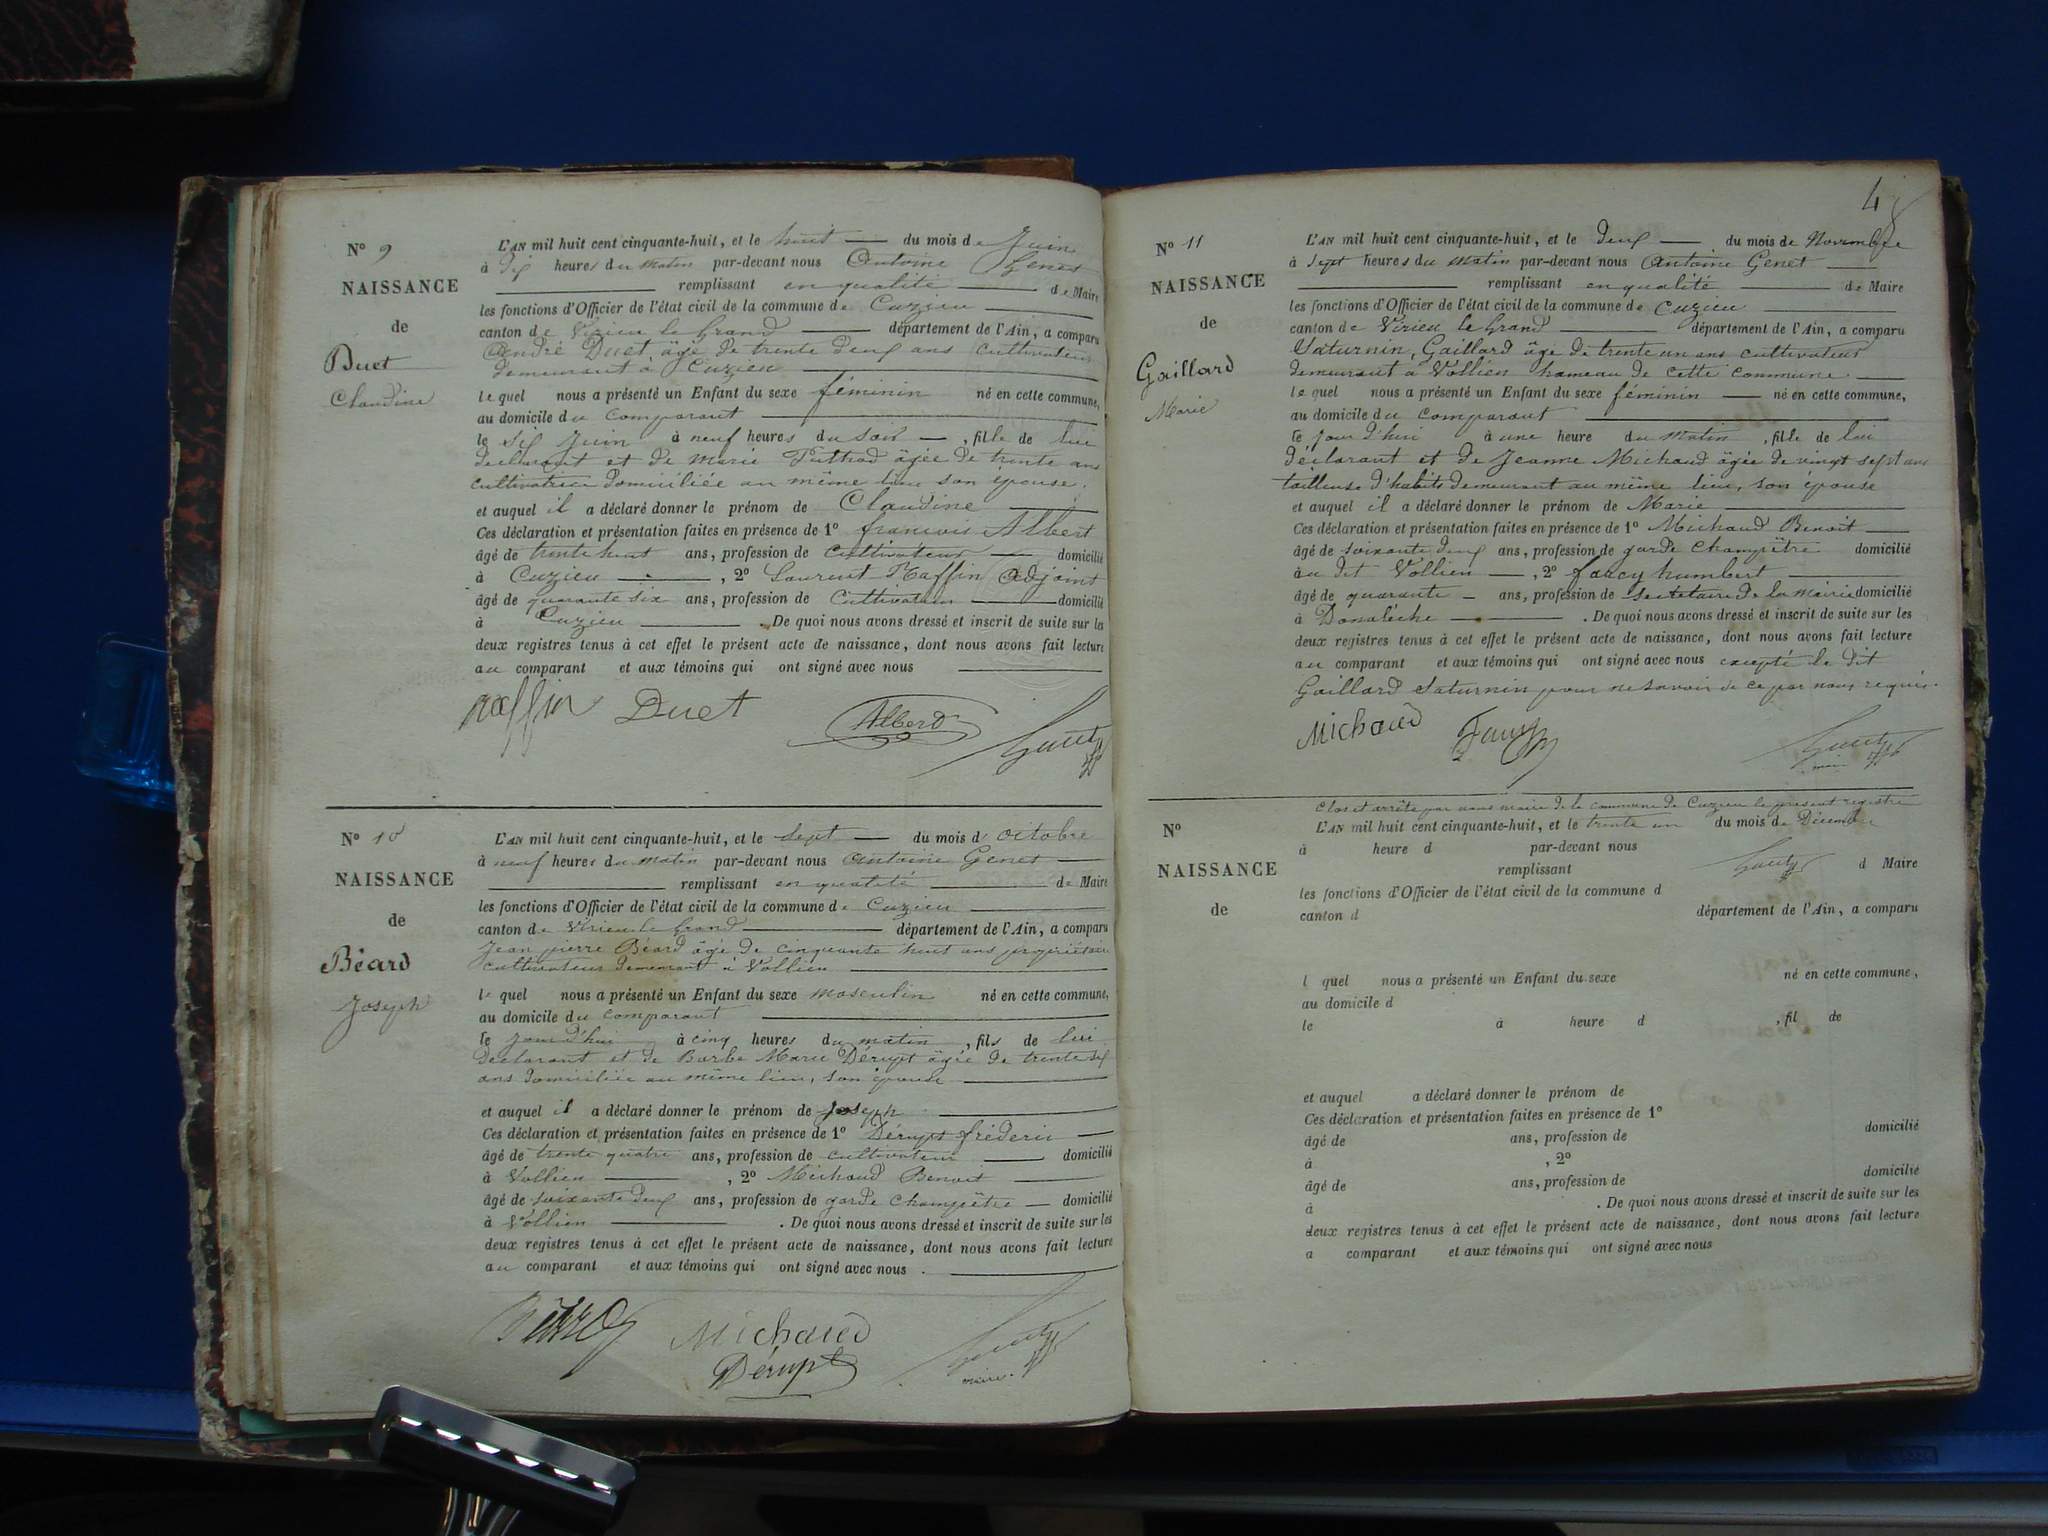 N° 9
NAISSANCE
de
Duet
Claudine
L'AN mil huit cent cinquante-huit, et le huit du mois de Juin
à dix heures du matin par-devant nous Antoine Genet
remplissant en qualité de Maire
les fonctions d'Officier de l'état civil de la commune de Cuzieu
canton de Virieu le Grand département de l'Ain, a comparu
André Duet, âgé de trente deux ans cultivateur
demeurant à Cuzieu
le quel nous a présenté un Enfant du sexe féminin né en cette commune,
au domicile du comparant
le six Juin à neuf heures du soir, fille de lui
déclarant et de Marie âgée de trente ans
cultivatrice domiciliée au même lieu son épouse.
et auquel il a déclaré donner le prénom de Claudine
Ces déclaration et présentation faites en présence de 1° françois Albert
âgé de trente huit ans, profession de Cultivateur domicilié
à Cuzieu, 2° Laurent Raffin Adjoint
âgé de quarante six ans, profession de Cultivateur domicilié
à Cuzieu. De quoi nous avons dressé et inscrit de suite sur les
deux registres tenus à cet effet le présent acte de naissance, dont nous avons fait lecture
au comparant et aux témoins qui ont signé avec nous
Raffin Duet Albert
N° 10
NAISSANCE
de
Béard
Joseph
L'AN mil huit cent cinquante-huit, et le sept du mois d'octobre
à neuf heures du matin par-devant nous Antoine Genet
remplissant en qualité de Maire
les fonctions d'Officier de l'état civil de la commune de Cuzieu
canton de Virieu le Grand département de l'Ain, a comparu
Jean pierre Béard âgé de cinquante huit ans propriétaire
cultivateur demeurant à Vollien
le quel nous a présenté un Enfant du sexe masculin né en cette commune,
au domicile du comparant
le jour d'hui à cinq heures du matin, fils de lui
déclarant et de Barbe Marie Dérupt âgée de trente six
ans domiciliée au même lieu, son épouse
et auquel il a déclaré donner le prénom de Joseph
Ces déclaration et présentation faites en présence de 1° Dérupt fréderic
âgé de trente quatre ans, profession de cultivateur domicilié
à Vollien, 2° Michaud Benoit
âgé de soixante deux ans, profession de garde Champêtre domicilié
à Vollien. De quoi nous avons dressé et inscrit de suite sur les
deux registres tenus à cet effet le présent acte de naissance, dont nous avons fait lecture
au comparant et aux témoins qui ont signé avec nous.
Michaud
Dérupt maire.
4
N° 11
NAISSANCE
de
Gaillard
Marie
L'AN mil huit cent cinquante-huit, et le deux du mois de Novembre
à sept heures du matin par-devant nous Antoine Genet
remplissant en qualité de Maire
les fonctions d'Officier de l'état civil de la commune de Cuzieu
canton de Virieu le Grand département de l'Ain, a comparu
Saturnin, Gaillard âgé de trente un ans cultivateur
demeurant à Vollien hameau de cette commune.
le quel nous a présenté un Enfant du sexe féminin né en cette commune,
au domicile du comparant
le jour d'hui à une heure du matin, fille de lui
déclarant et de Jeanne Michaud âgée de vingt sept ans
tailleuse d'habits demeurant au même lieu, son épouse
et auquel il a déclaré donner le prénom de Marie
Ces déclaration et présentation faites en présence de 1° Michaud Benoit
âgé de soixante deux ans, profession de garde Champêtre domicilié
au dit Vollien, 2° humbert
âgé de quarante ans, profession de secretaire de la mairie domicilié
à. De quoi nous avons dressé et inscrit de suite sur les
deux registres tenus à cet effet le présent acte de naissance, dont nous avons fait lecture
au comparant et aux témoins qui ont signé avec nous excepté le dit
Gaillard Saturnin pour ne savoir de ce par nous requis.
Michaud
maire
Clos et arrêté par nous maire de la commune de Cuzieu le présent registre
N°
NAISSANCE
de
L'AN mil huit cent cinquante-huit, et le trente un du mois de Décembre
à heure d par-devant nous
remplissant d Maire
les fonctions d'Officier de l'état civil de la commune d
canton d département de l'Ain, a comparu
l quel nous a présenté un Enfant du sexe né en cette commune,
au domicile d
le à heure d, fil de
et auquel a déclaré donner le prénom de
Ces déclaration et présentation faites en présence de 1°
âgé de ans, profession de domicilié
à, 2°
âgé de ans, profession de domicilié
à. De quoi nous avons dressé et inscrit de suite sur les
deux registres tenus à cet effet le présent acte de naissance, dont nous avons fait lecture
a comparant et aux témoins qui ont signé avec nous